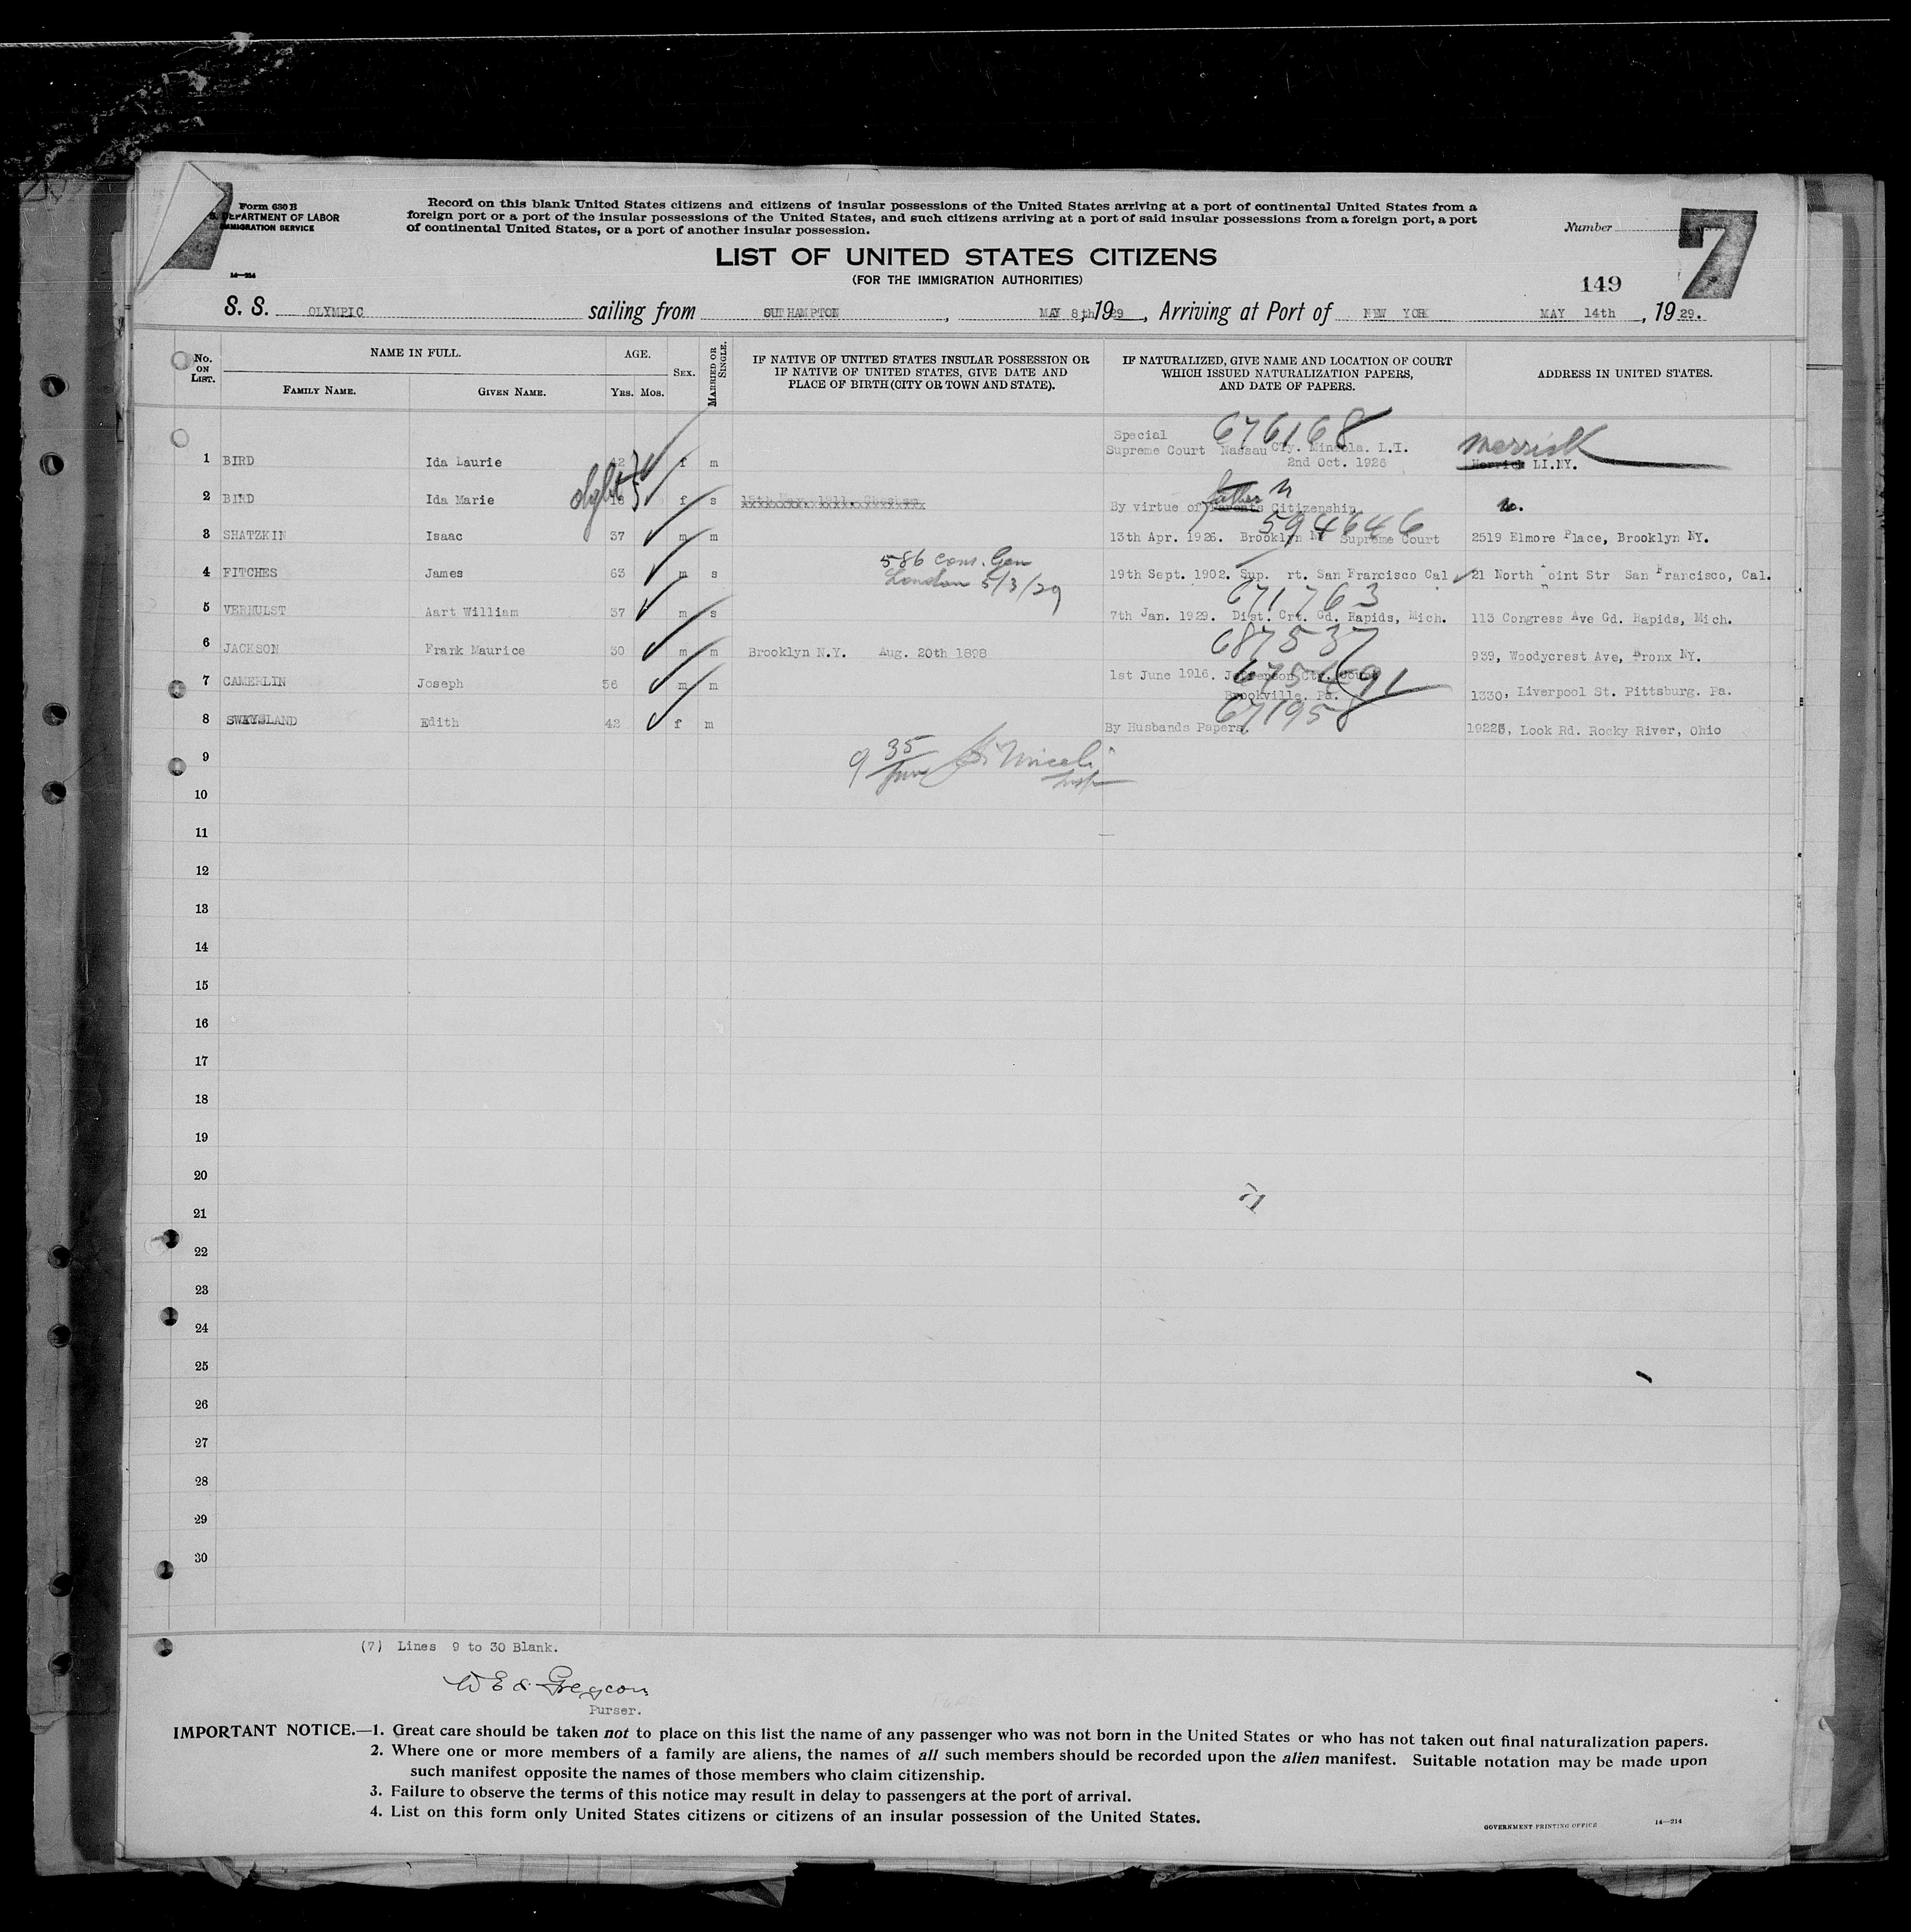 Form 630 B
U. S. DEPARTMENT OF LABOR
IMMIGRATION SERVICE
14—214
7
Record on this blank United States citizens and citizens of insular possessions of the United States arriving at a port of continental United States from a
foreign port or a port of the insular possessions of the United States, and such citizens arriving at a port of said insular possessions from a foreign port, a port
of continental United States, or a port of another insular possession.
Number
7
LIST OF UNITED STATES CITIZENS
(FOR THE IMMIGRATION AUTHORITIES)
149
S. S. OLYMPIC sailing from SUTHAMPTON, MAY 8th, 1929, Arriving at Port of NEW YORK MAY 14th, 1929.
No. ON LIST. NAME IN FULL. AGE. SEX. MARRIED OR SINGLE. IF NATIVE OF UNITED STATES INSULAR POSSESSION OR IF NATIVE OF UNITED STATES, GIVE DATE AND PLACE OF BIRTH (CITY OR TOWN AND STATE). IF NATURALIZED, GIVE NAME AND LOCATION OF COURT WHICH ISSUED NATURALIZATION PAPERS, AND DATE OF PAPERS. ADDRESS IN UNITED STATES.
FAMILY NAME. GIVEN NAME. YRS. MOS.
Special 676168
Supreme Court Nassau Cty. Mineola. L.I. Merrick
1 BIRD Ida Laurie 42 f m 2nd Oct. 1926 Merrick LI.NY.
father
2 BIRD Ida Marie 18 f s By virtue of Parents Citizenship
594646
3 SHATZKIN Isaac 37 m m 13th Apr. 1926. Brooklyn NY Supreme Court 2519 Elmore Place, Brooklyn NY.
586 Cons. Gen
London 5/3/29
4 FITCHES James 63 m s 19th Sept. 1902. Sup. rt. San Francisco Cal 21 North Point Str San Francisco, Cal.
671763
5 VERHULST Aart William 37 m s 7th Jan. 1929. Dist. Crt. Gd. Rapids, Mich. 113 Congress Ave Gd. Rapids, Mich.
687537
6 JACKSON Frank Maurice 30 m m Brooklyn N.Y. Aug. 20th 1898 939, Woodycrest Ave, Bronx NY.
675491
7 CAMERLIN Joseph 56 m m 1st June 1916. Jefferson Cty. Court Brookville. Pa. 1330, Liverpool St. Pittsburg. Pa.
671958
8 SWAYSLAND Edith 42 f m By Husbands Papers. 19225, Look Rd. Rocky River, Ohio
9 35
9
10
11
12
13
14
15
16
17
18
19
20
21
22
23
24
25
26
27
28
29
30
(7) Lines 9 to 30 Blank.
Purser.
IMPORTANT NOTICE.—1. Great care should be taken not to place on this list the name of any passenger who was not born in the United States or who has not taken out final naturalization papers.
2. Where one or more members of a family are aliens, the names of all such members should be recorded upon the alien manifest. Suitable notation may be made upon
such manifest opposite the names of those members who claim citizenship.
3. Failure to observe the terms of this notice may result in delay to passengers at the port of arrival.
4. List on this form only United States citizens or citizens of an insular possession of the United States.
GOVERNMENT PRINTING OFFICE 14—214